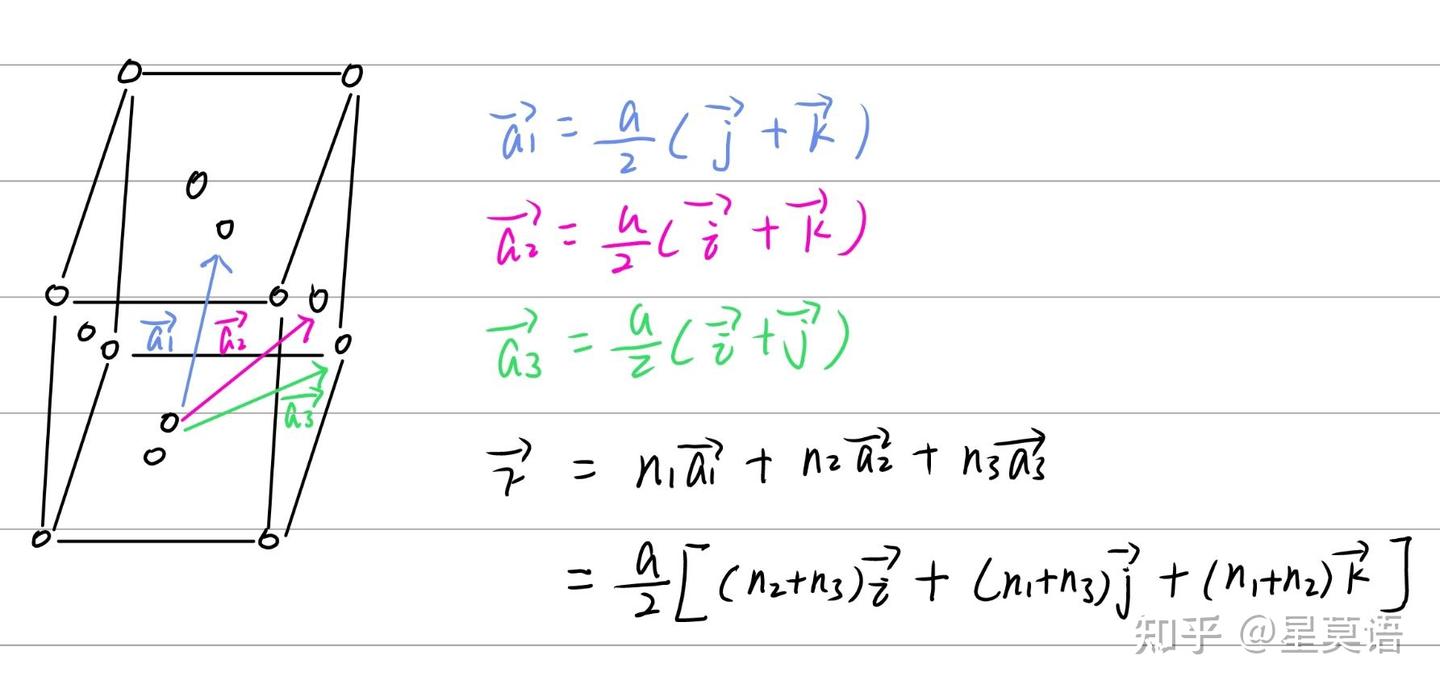 a₁⃗ = a/2 ( j⃗ + k⃗ )
a₂⃗ = a/2 ( i⃗ + k⃗ )
a₃⃗ = a/2 ( i⃗ + j⃗ )
a₁⃗ a₂⃗
a₃⃗
r⃗ = n₁a₁⃗ + n₂a₂⃗ + n₃a₃⃗
= a/2 [ (n₂+n₃) i⃗ + (n₁+n₃) j⃗ + (n₁+n₂) k⃗ ]
知乎 @星莫语